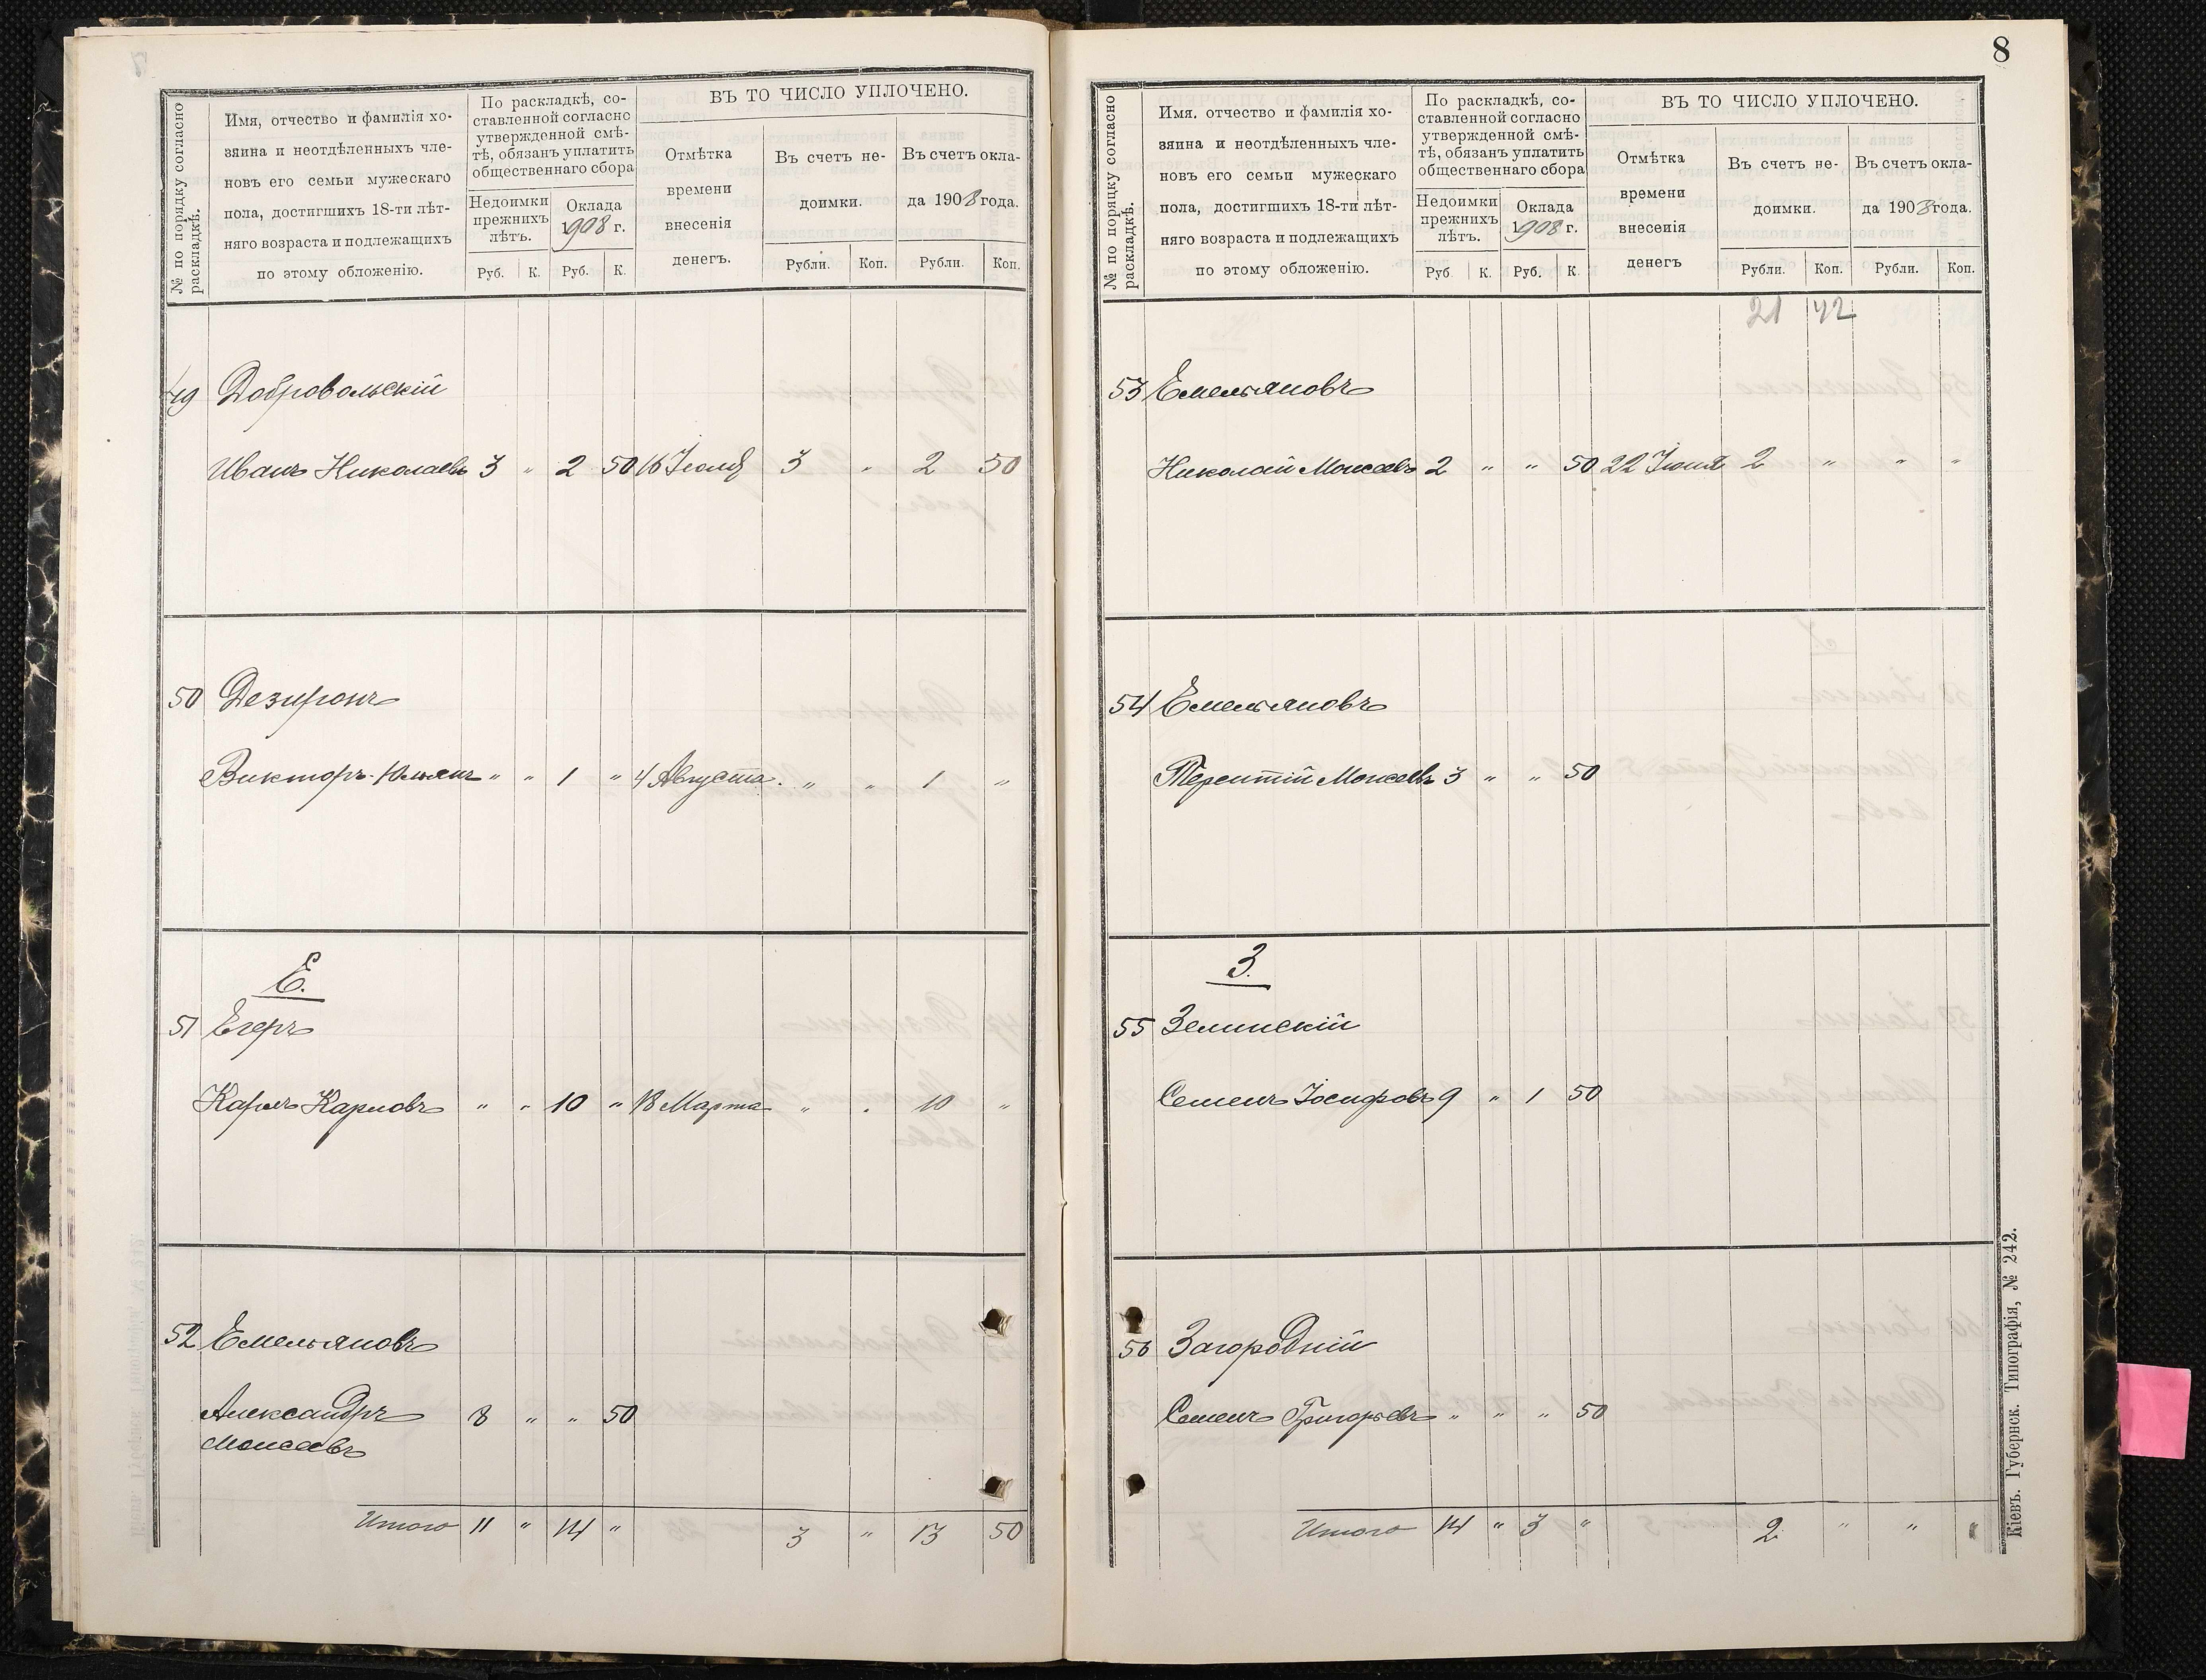 № по порядку согласно раскладкѣ.
Имя, отчество и фамилія хо-
зяина и неотдѣленныхъ чле-
новъ его семьи мужескаго
пола, достигшихъ 18-ти лѣт-
няго возраста и подлежащихъ
по этому обложенію.
По раскладкѣ, со-
ставленной согласно
утвержденной смѣ-
тѣ, обязанъ уплатить
общественнаго сбора
Недоимки
прежнихъ
лѣтъ.
Оклада
1908 г.
Руб. К. Руб. К.
ВЪ ТО ЧИСЛО УПЛОЧЕНО.
Отмѣтка
времени
внесенія
денегъ.
Въ счетъ не-
доимки.
Въ счетъ окла-
да 1908 года.
Рубли. Коп. Рубли. Коп.
49 Добровольскій
Иванъ Николаевъ 3 „ 2 50 16 Іюля 3 „ 2 50
50 Дезиронъ
Викторъ-Юльянъ „ „ 1 „ 4 Августа „ „ 1 „
Е.
51 Егеръ
Карлъ Карловъ „ „ 10 „ 18 Марта „ „ 10 „
52 Емельяновъ
Александръ 8 „ „ 50
Моисеевъ
Итого 11 „ 14 „ 3 „ 13 50
8
№ по порядку согласно раскладкѣ.
Имя, отчество и фамилія хо-
зяина и неотдѣленныхъ чле-
новъ его семьи мужескаго
пола, достигшихъ 18-ти лѣт-
няго возраста и подлежащихъ
по этому обложенію.
По раскладкѣ, со-
ставленной согласно
утвержденной смѣ-
тѣ, обязанъ уплатить
общественнаго сбора
Недоимки
прежнихъ
лѣтъ.
Оклада
1908 г.
Руб К. Руб. К.
ВЪ ТО ЧИСЛО УПЛОЧЕНО.
Отмѣтка
времени
внесенія
денегъ
Въ счетъ не-
доимки.
Въ счетъ окла-
да 1908 года.
Рубли. Коп. Рубли. Коп.
21 42
53 Емельяновъ
Николай Моисеевъ 2 „ „ 50 22 Іюня 2 „ „ „
54 Емельяновъ
Терентій Моисеевъ 3 „ „ 50
З.
55 Зелинскій
Семенъ Іосифовъ 9 „ 1 50
56 Загородній
Семенъ Григорьевъ „ „ „ 50
Итого 14 „ 3 „ 2 „ „ „
Кіевъ. Губернск. Типографія, № 242.